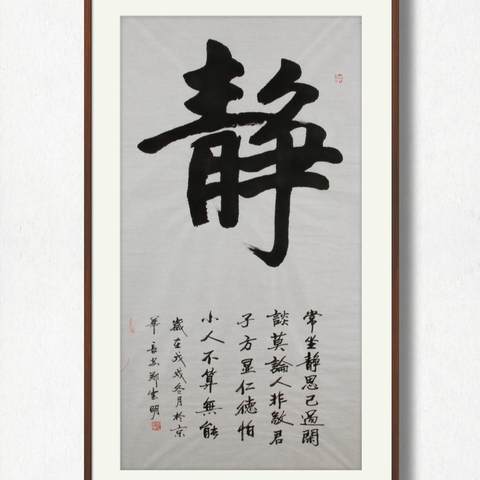 靜
常坐靜思己過閑
談莫論人非敬君
子方显仁德怕
小人不算無能
歲在戊戌冬月於京
華